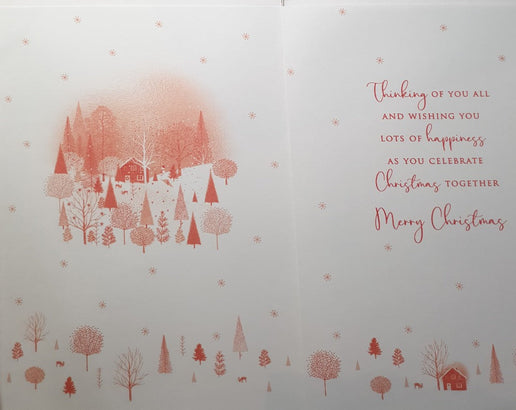 Thinking OF YOU ALL
AND WISHING YOU
LOTS OF happiness
AS YOU CELEBRATE
Christmas TOGETHER
Merry Christmas